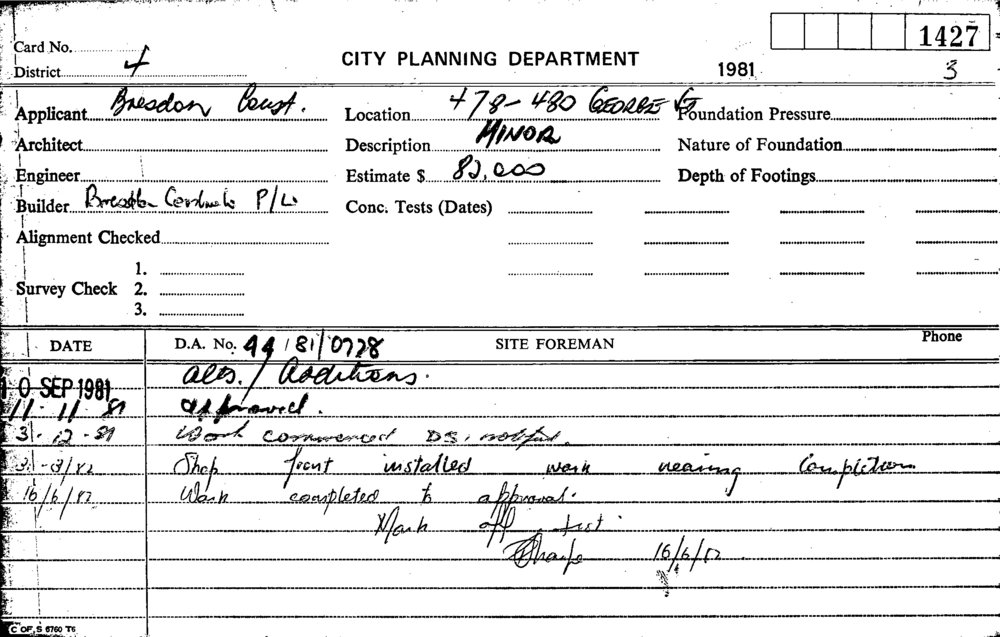 1427
Card No.
CITY PLANNING DEPARTMENT
District 4
1981
3
Applicant Bresdon Const.
Location 478-480 GEORGE ST
Foundation Pressure
Architect
Description MINOR
Nature of Foundation
Engineer
Estimate $ 82,000
Depth of Footings
Builder P/L.
Conc. Tests (Dates)
Alignment Checked
1.
Survey Check 2.
3.
DATE
D.A. No. 44/81/0778
SITE FOREMAN
Phone
10 SEP 1981 Alts./Additions.
11-11-81 approved.
3-12-81 Work commenced DS.
3/82 Shop front installed work nearing completion
16/6/82 Work completed to approval.
Mark off list.
Sharpe 16/6/82
C OF S 6760 T6